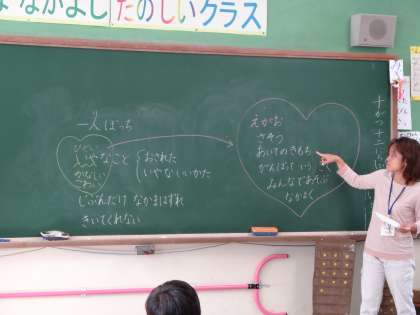 なかよし たのしいクラス
一人ぼっち
ひどい
いやなこと
かなしい
こわい
おされた
いやないいかた
じぶんだけ なかまはずれ
きいてくれない
えがお
あいてのきもち
がんばって
みんなであそぶ
なかよく
十がつ十二